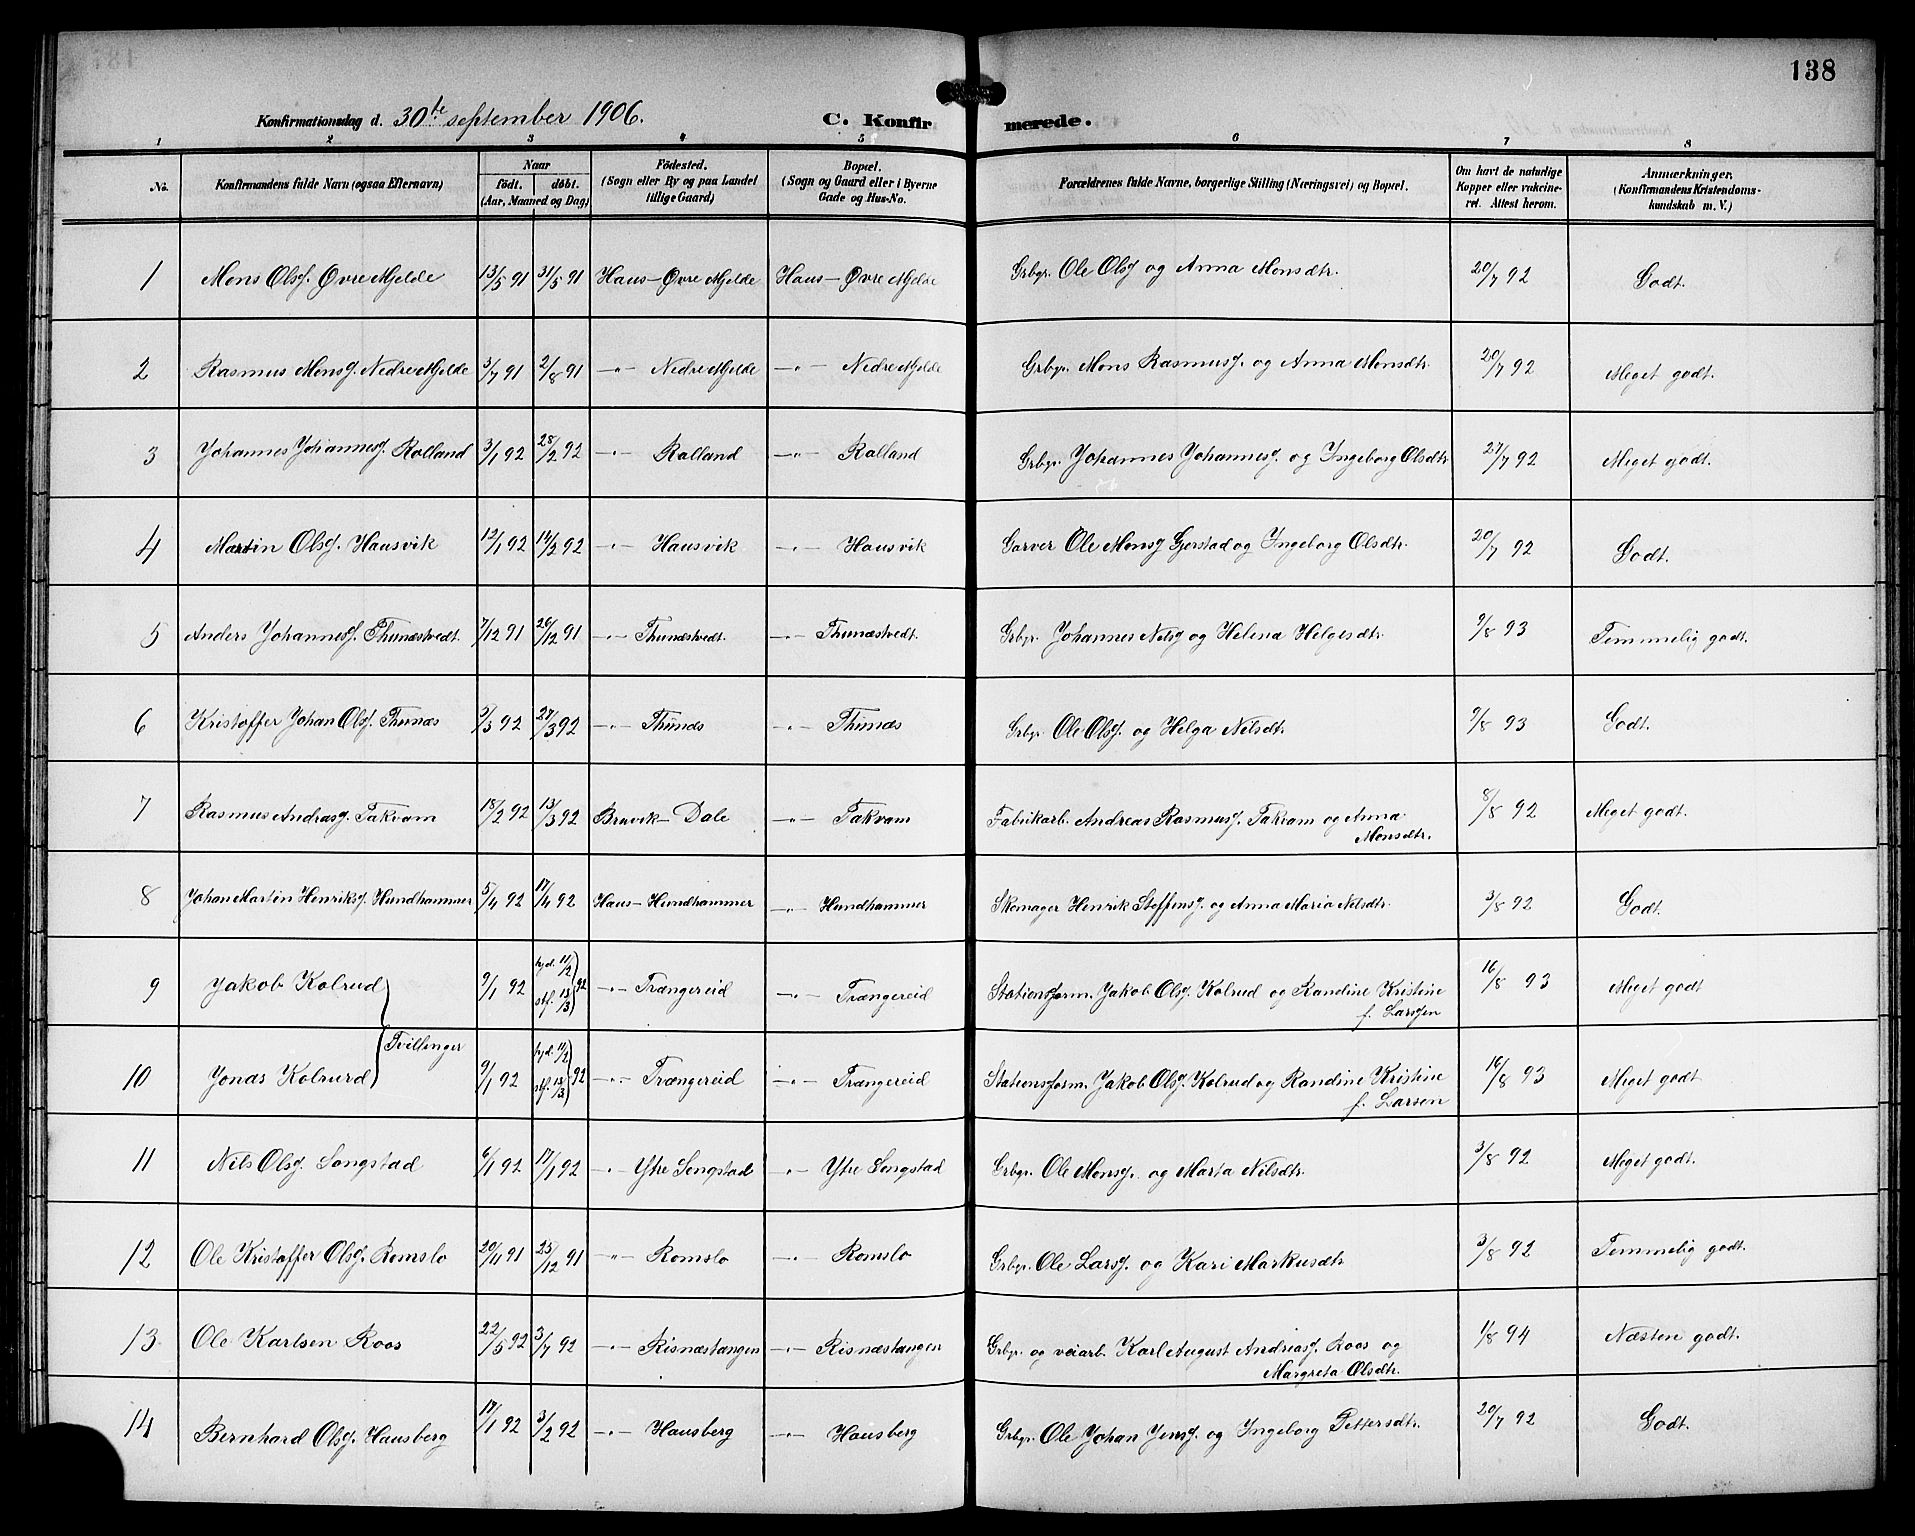 138
Konfirmationsdag d. 30te september 1906. C. Konfirmerede.
1 2 3 4 5 6 7 8
No. Konfirmandens fulde Navn (ogsaa Efternavn) Naar født. døbt. (Aar, Maaned og Dag) Fødested. (Sogn eller By og paa Landet tillige Gaard) Bopæl. (Sogn og Gaard eller i Byerne Gade og Hus-No. Forældrenes fulde Navne, borgerlige Stilling (Næringsvei) og Bopæl. Om havt de naturlige Kopper eller vakcineret. Attest herom. Anmærkninger. (Konfirmandens Kristendomskundskab m. V.)
1 Mons Olsg. Øvre Mjelde 13/5 91 31/5 91 Haus - Øvre Mjelde Haus - Øvre Mjelde Grbgr. Ole Olsg og Anna Monsdtr. 20/7 92 Godt.
2 Rasmus Monsg. Nedre Mjelde 3/7 91 2/8 91 -"- Nedre Mjelde -"- Nedre Mjelde Grbgr. Mons Rasmusg. og Anna Monsdtr. 20/7 92 Meget godt.
3 Johannes Johannesg. Rolland 3/1 92 28/2 92 -"- Rolland -"- Rolland Grbgr. Johannes Johannesg. og Ingeborg Olsdtr 27/7 92 Meget godt.
4 Martin Olsg. Hausvik 12/1 92 14/2 92 -"- Hausvik -"- Hausvik Garver Ole Monsg Gjerstad og Ingeborg Olsdtr. 20/7 92 Godt.
5 Anders Johannesg. Thunæstvedt. 7/12 91 26/12 91 -"- Thunæstvedt. -"- Thunæstvedt. Grbgr. Johannes Nelsg og Helena Helgesdtr. 9/8 93 Temmelig godt.
6 Kristoffer Johan Olsg. Thunæs 3/3 92 27/3 92 -"- Thunæs -"- Thunæs Grbgr. Ole Olsg. og Helga Nilsdtr. 9/8 93 Godt.
7 Rasmus Andrasg. Takvam 18/2 92 13/3 92 Bruvik - Dale -"- Takvam Fabrikarb. Andreas Rasmusg. Takvam og Anna
Monsdtr. 8/8 92 Meget godt.
8 Johan Martin Henriksg. Hundhammer 5/4 92 17/4 92 Haus - Hundhammer -"- Hundhammer Skomager Henrik Steffensg. og Anna Maria Nilsdtr. 3/8 92 Godt.
9 Jakob Kolrud 9/1 92 hjd. 11/2 stf. 13/3 92 -"- Trængereid -"- Trængereid Stationsform. Jakob Olsg. Kolrud og Randine Kristine
f. Larssen 16/8 93 Meget godt
Tvillinger
10 Jonas Kolrurd 9/1 92 hjd. 11/2 stf. 13/3 92 -"- Trængereid -"- Trængereid Stationsform. Jakob Olsg. Kolrud og Randine Kristine
f. Larsen 16/8 93 Meget godt
11 Nils Olsg. Songstad 6/1 92 17/1 92 -"- Ytre Songstad -"- Ytre Songstad Grbgr. Ole Monsg. og Marta Nilsdtr. 3/8 92 Meget godt.
12 Ole Kristoffer Olsg. Romslo 20/11 91 25/12 91 -"- Romslo -"- Romslo Grbgr. Ole Larsg. og Kari Markusdtr 3/8 92 Temmelig godt.
13 Ole Karlsen Roos 22/5 92 3/7 92 -"- Risnæstangen -"- Risnæstangen Grbgr. og veiarb. Karl August Andriasg. Roos og
Margreta Olsdtr. 1/8 94 Næsten godt.
14 Bernhard Olsg. Hausberg 17/1 92 3/2 92 -"- Hausberg -"- Hausberg Grbgr. Ole Johan Jensg. og Ingeborg Pettersdtr. 20/7 92 Godt.